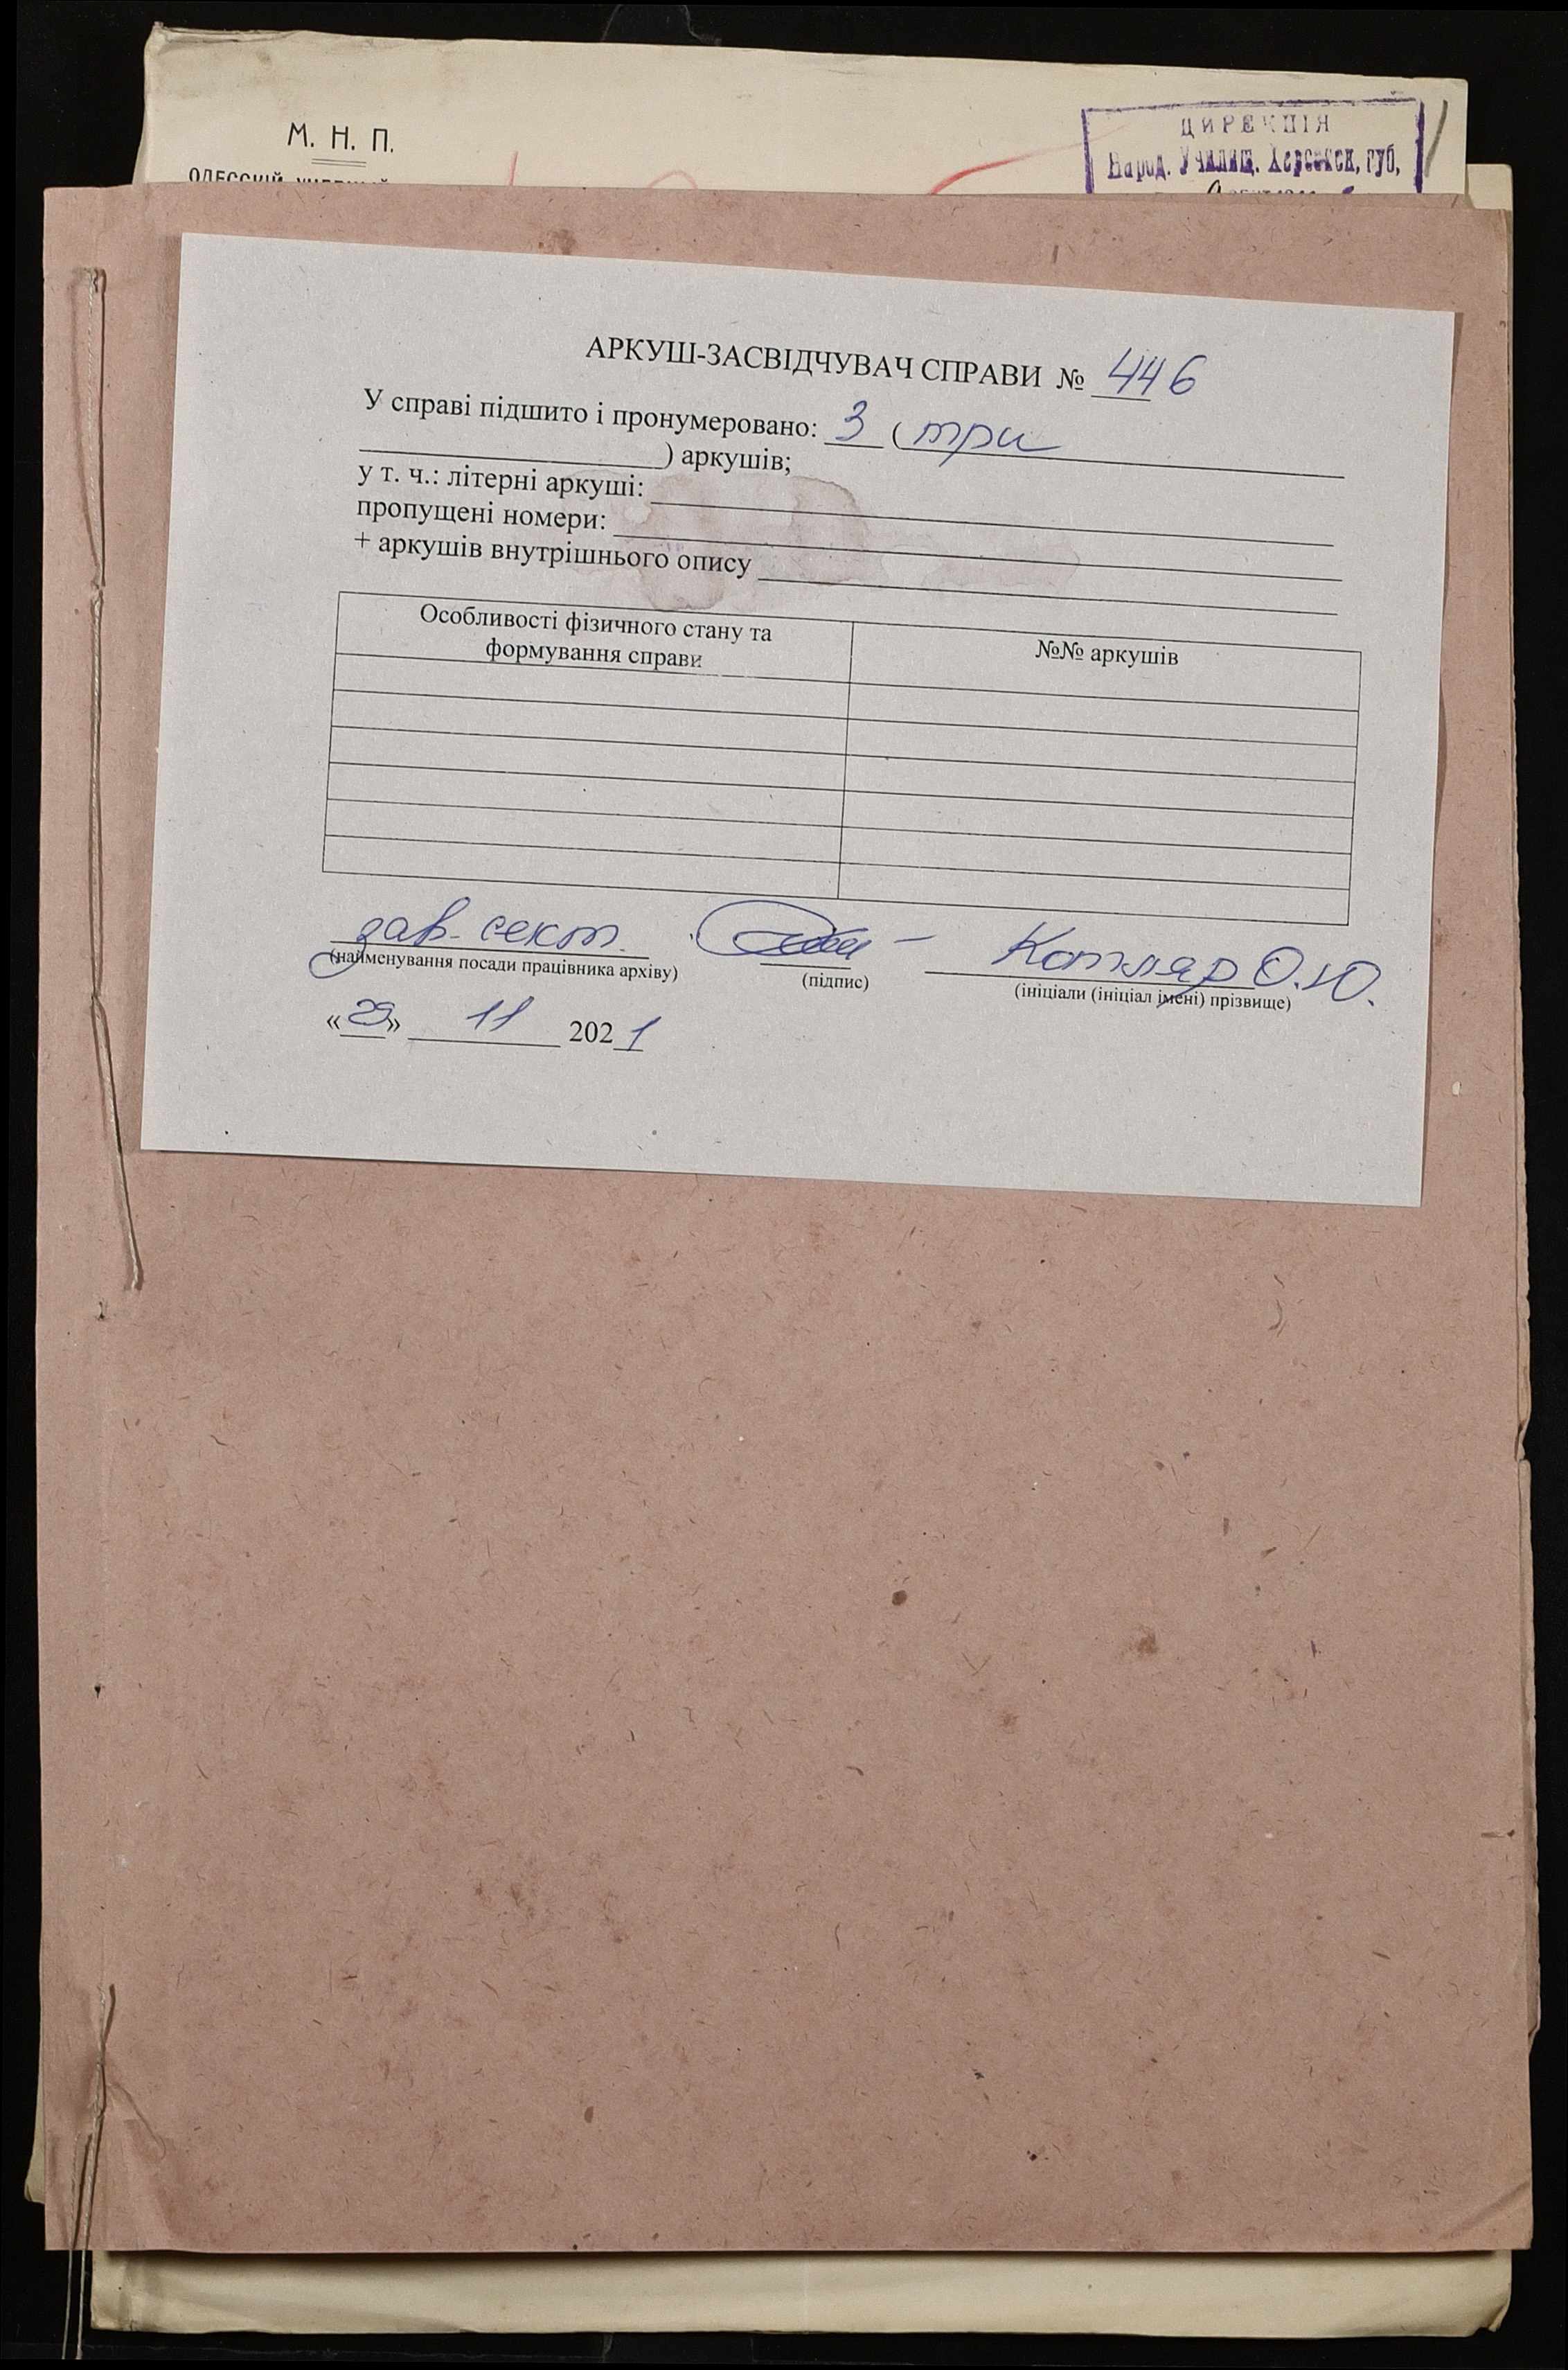 М. Н. П.
ОДЕССКІЙ УЧЕБНЫЙ
ДИРЕКЦІЯ
Народ. Училищ. Херсонск. губ.
АРКУШ-ЗАСВІДЧУВАЧ СПРАВИ № 446
У справі підшито і пронумеровано: 3 ( три
) аркушів;
у т. ч.: літерні аркуші:
пропущені номери:
+ аркушів внутрішнього опису
Особливості фізичного стану та
формування справи
№№ аркушів
зав. сект. Котляр О.Ю.
(найменування посади працівника архіву) (підпис) (ініціали (ініціал імені) прізвище)
«29» 11 2021